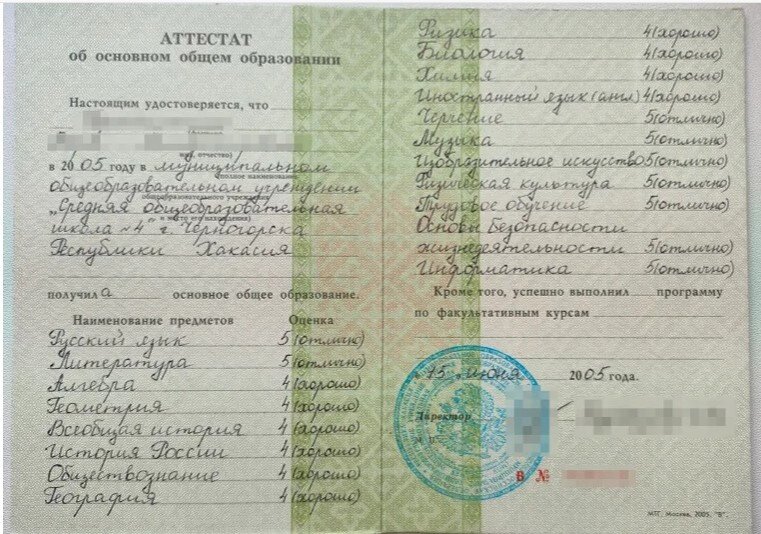 АТТЕСТАТ
об основном общем образовании
Настоящим удостоверяется, что
отчество)
в 2005 году в муниципальном
(полное наименование
общеобразовательном учреждении
общеобразовательного учреждения
„Средняя общеобразовательная
и место его нахождения)
школа №4" г. Черногорска
Республики Хакасия
получила основное общее образование.
Наименование предметов Оценка
Русский язык 5 (отлично)
Литература 5 (отлично)
Алгебра 4 (хорошо)
Геометрия 4 (хорошо)
Всеобщая история 4 (хорошо)
История России 4 (хорошо)
Обществознание 4 (хорошо)
География 4 (хорошо)
Физика 4 (хорошо)
Биология 4 (хорошо)
Химия 4 (хорошо)
Иностранный язык (англ) 4 (хорошо)
Черчение 5 (отлично)
Музыка 5 (отлично)
Изобразительное искусство 5 (отлично)
Физическая культура 5 (отлично)
Трудовое обучение 5 (отлично)
Основы безопасности
жизнедеятельности 5 (отлично)
Информатика 5 (отлично)
Кроме того, успешно выполнил программу
по факультативным курсам
15 июня 2005 года.
Директор
М.П.
В №
МТГ. Москва, 2005. "В".